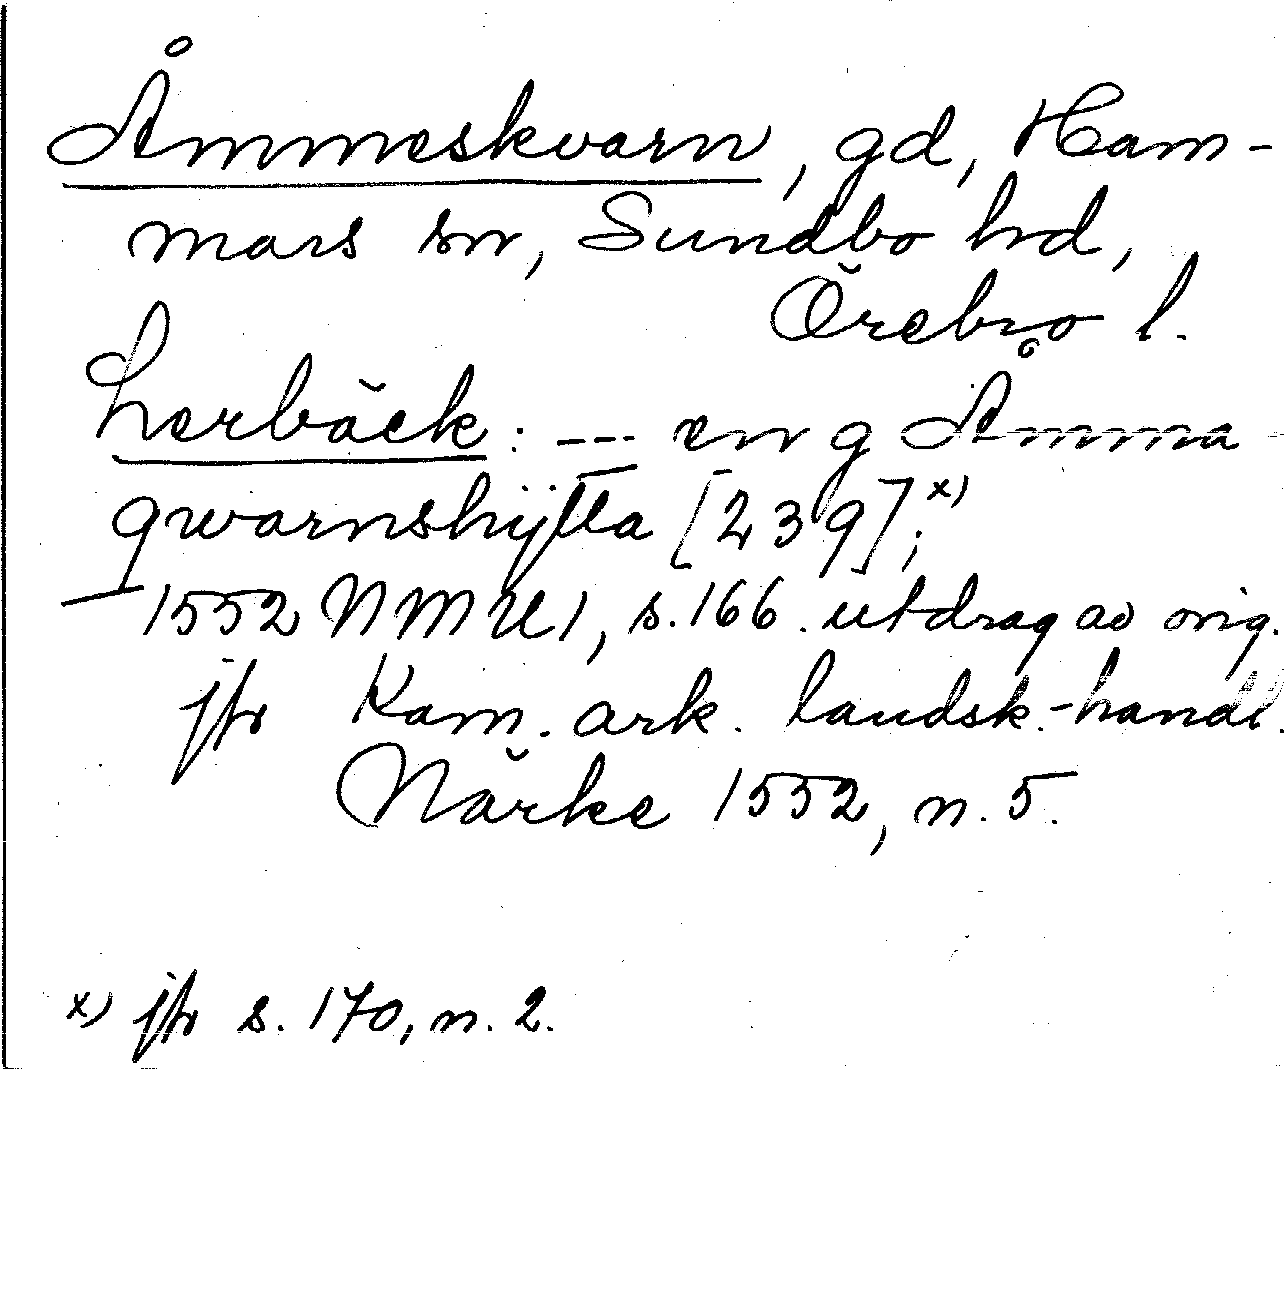 Åmmeskvarn, gd, Ham-
mars sn, Sundbo hrd,
Örebro l.
Lerbäck: --- en g Åmma
qwarnshÿtta [239];x)
1552 NMU1, s. 166. utdrag av orig.
jfr Kam. ark. landsk.-handl.
Närke 1552, n. 5.
x) jfr s. 170, n. 2.